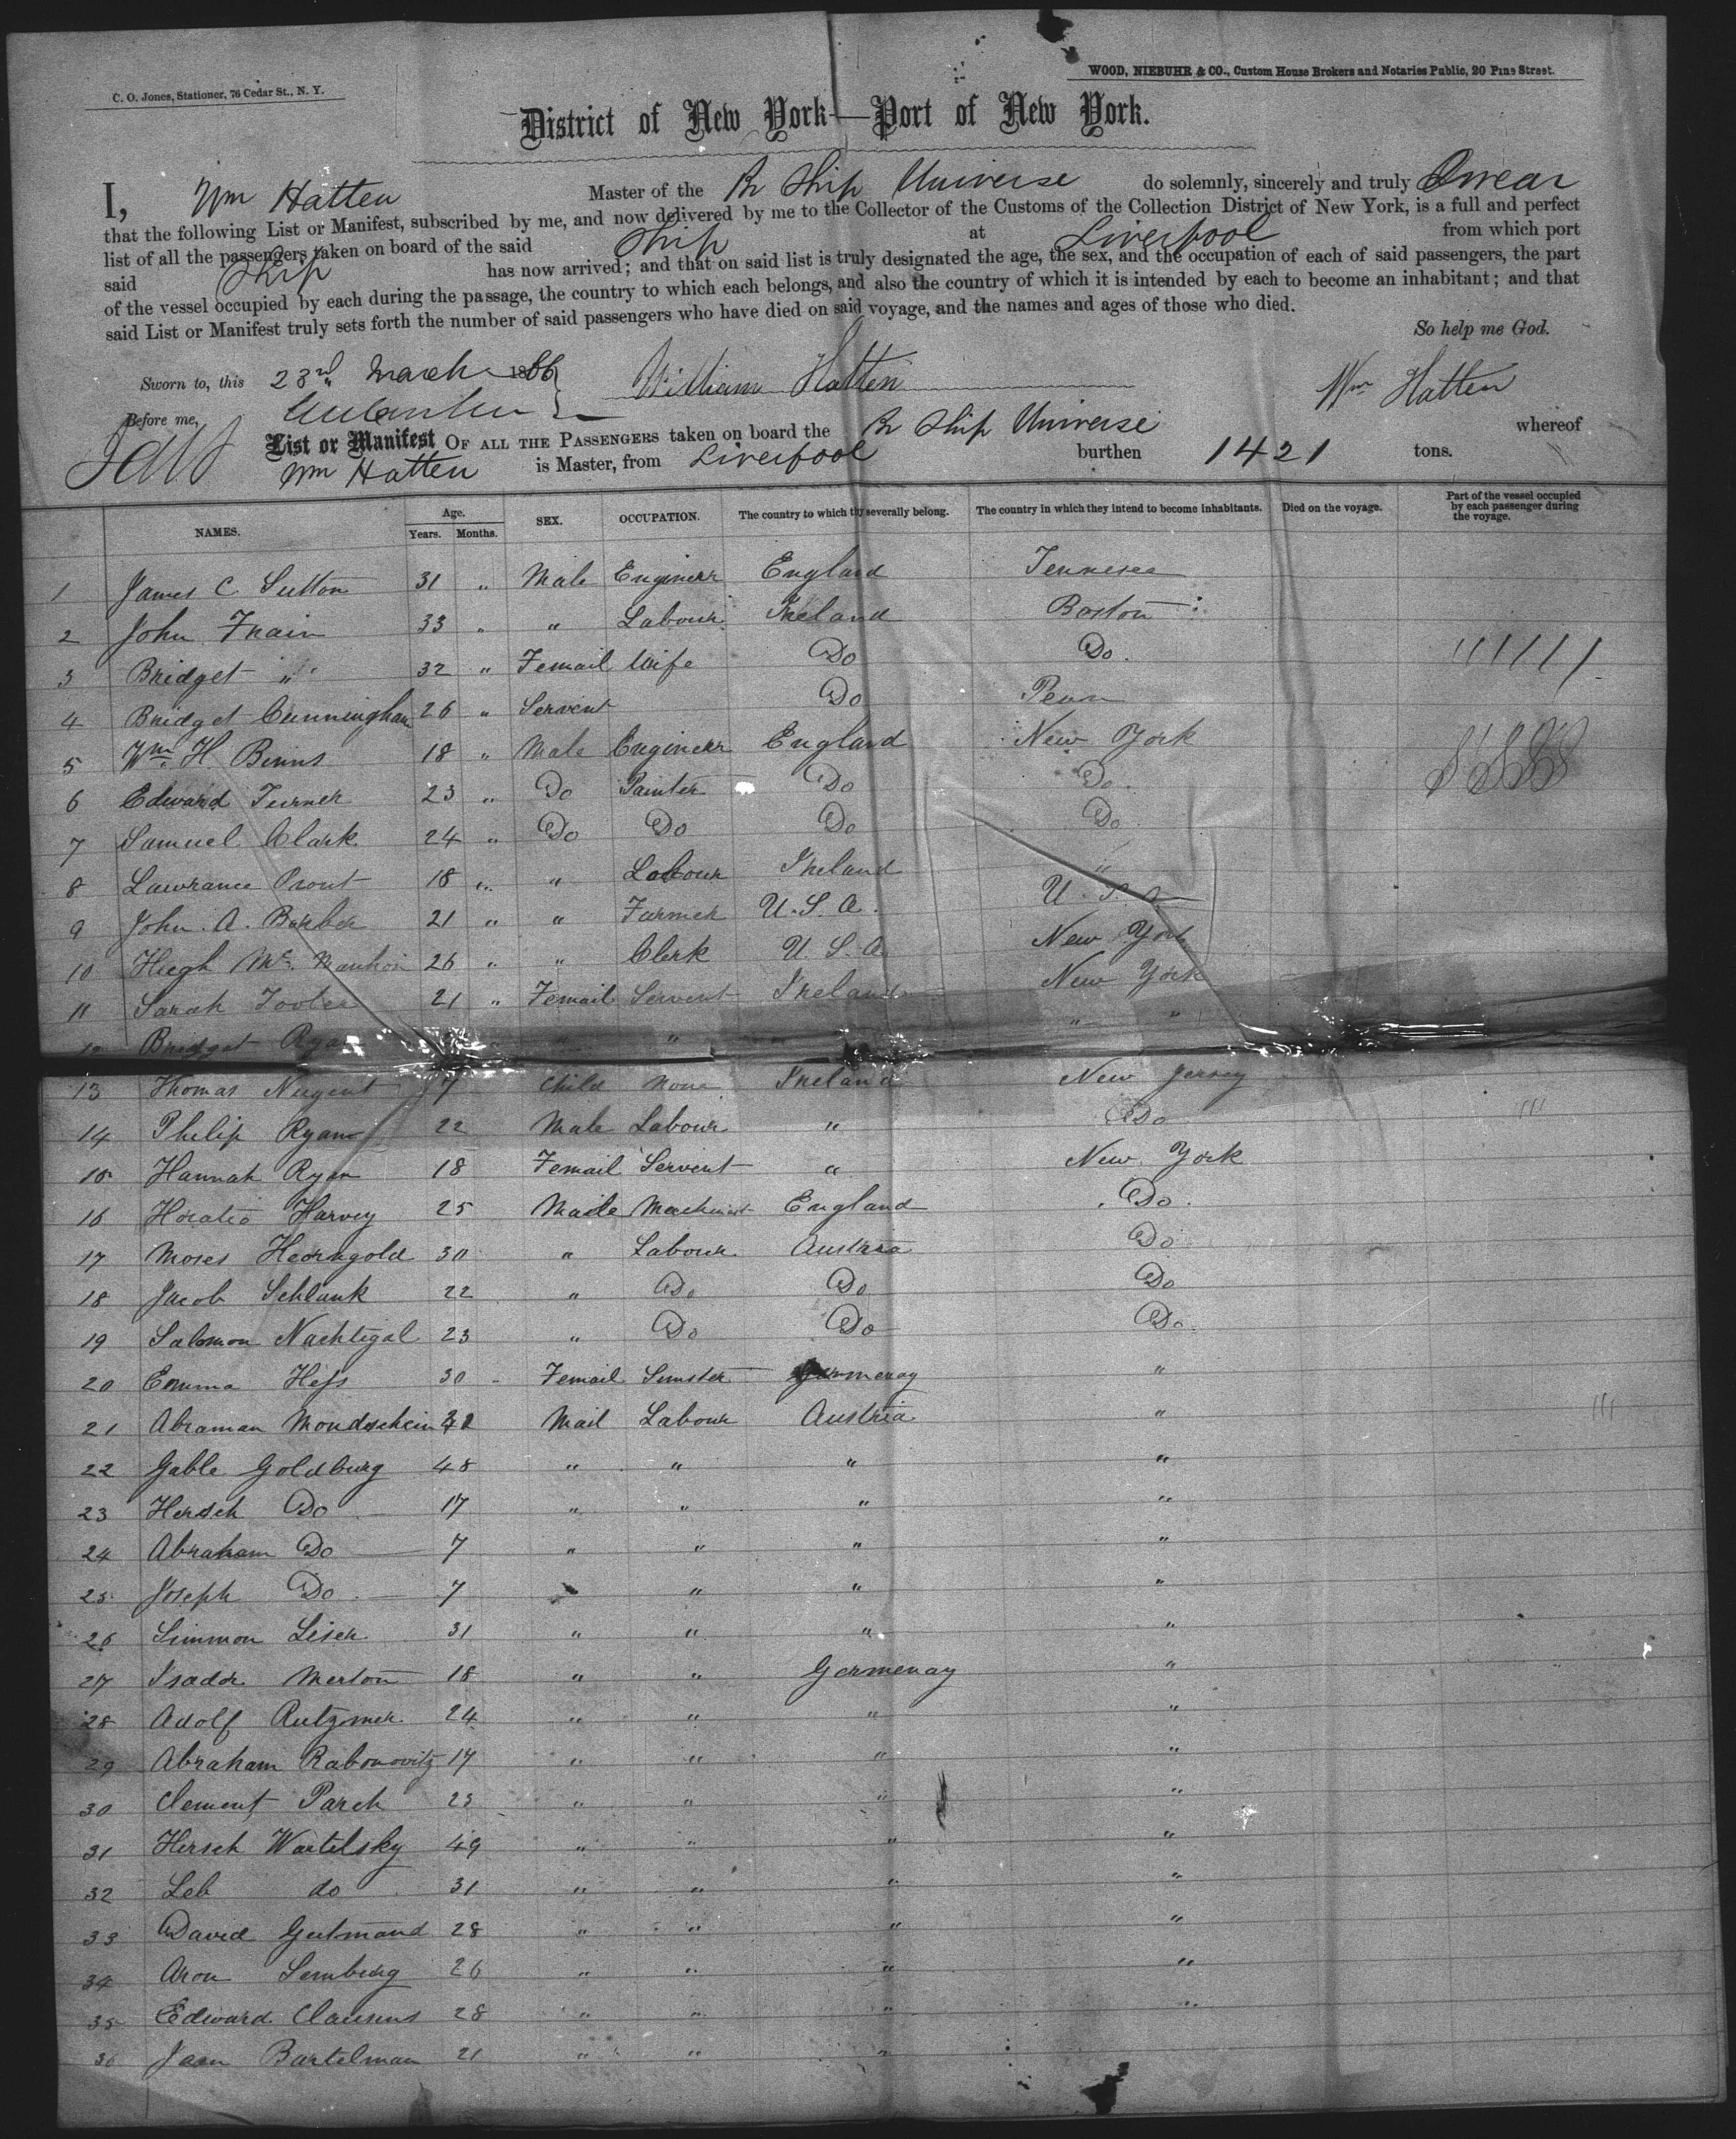 C. O. Jones, Stationer, 76 Cedar St., N. Y.
WOOD, NIEBUHR & CO., Custom House Brokers and Notaries Public, 20 Pine Street.
District of New York—Port of New York.
I, Wm Hatten Master of the Br Ship Universe do solemnly, sincerely and truly Swear
that the following List or Manifest, subscribed by me, and now delivered by me to the Collector of the Customs of the Collection District of New York, is a full and perfect
list of all the passengers taken on board of the said Ship at Liverpool from which port
said Ship has now arrived; and that on said list is truly designated the age, the sex, and the occupation of each of said passengers, the part
of the vessel occupied by each during the passage, the country to which each belongs, and also the country of which it is intended by each to become an inhabitant; and that
said List or Manifest truly sets forth the number of said passengers who have died on said voyage, and the names and ages of those who died.
So help me God.
Sworn to, this 23rd March 1886 William Hatten Wm Hatten
Before me,
List or Manifest OF ALL THE PASSENGERS taken on board the Br Ship Universe whereof
Wm Hatten is Master, from Liverpool burthen 1421 tons.
NAMES. Age. Years. Months. SEX. OCCUPATION. The country to which they severally belong. The country in which they intend to become inhabitants. Died on the voyage. Part of the vessel occupied by each passenger during the voyage.
1 James C Sutton 31 " Male Engineer England Tennesee
2 John Frain 33 " " Labour Ireland Boston
3 Bridget " 32 " Femail Wife Do Do
4 Bridget Cunningham 26 " Servent Do Penn
5 Wm. H. Binns 18 " Male Engineer England New York
6 Edward Turner 23 " Do Painter Do Do
7 Samuel Clark 24 " Do Do Do Do
8 Lawrance Prout 18 " " Labour Ireland "
9 John. A. Barber 21 " " Farmer U.S.A. U.S.A
10 Hugh Mc. 26 " " Clerk U.S.A. New York
11 Sarah Tooler 21 " Femail Servent Ireland New York
12 Bridget Ryan " " " "
13 Thomas Nugent 7 Child None Ireland New Jersey
14 Philip Ryan 22 Male Labour " Do
15 Hannah Ryan 18 Femail Servent " New York
16 Horatio Harvey 25 Male Machinist England Do
17 Moses Heorngold 30 " Labour Austria Do
18 Jacob Schlank 22 " Do Do Do
19 Salomon Nachtigal 23 " Do Do Do
20 Emma Hess 30 Femail Simster Germenay "
21 Abraman Mondschein Mail Labour Austria "
22 Gable Goldburg 48 " " " "
23 Hersch Do 17 " " " "
24 Abraham Do 7 " " " "
25 Joseph Do 7 " " " "
26 Simmon Liser 31 " " " "
27 Isador Merton 18 " " Germenay "
28 Adolf Rutzmer 24 " " " "
29 Abraham Rabonovitz 17 " " " "
30 Clement Parch 23 " " " "
31 Hersch Wartelsky 49 " " " "
32 Leb do 31 " " " "
33 David Gutmand 28 " " " "
34 Aron Semburg 26 " " " "
35 Edward Clausens 28 " " " "
36 Jean Bartelman 21 " " "